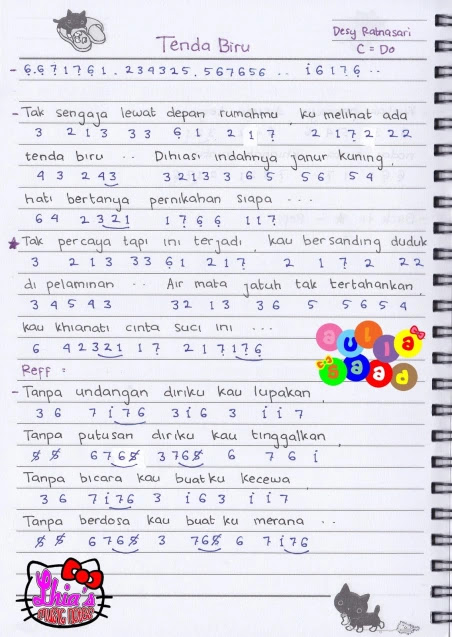 Desy Ratnasari
Tenda Biru
C = Do
- 6̣.6̣71761.234325.567656 .. i6176̣ ..
- Tak sengaja lewat depan rumahmu, ku melihat ada
3 2 1 3 3 3 6̣ 1 2 1 7̣ 2 1 7̣ 2 2 2
tenda biru .. Dihiasi indahnya janur kuning,
4 3 2 43 3 2 1 3 3 1 6̣ 5 5 6 5 4
hati bertanya pernikahan siapa ...
6 4 2 321 1 7̣ 6̣ 6̣ 1 1 7̣
★ Tak percaya tapi ini terjadi, kau bersanding duduk
3 2 1 3 3 3 6̣ 1 2 1 7̣ 2 1 7̣ 2 2 2
di pelaminan .. Air mata jatuh tak tertahankan,
3 4 5 4 3 3 2 1 3 3 6 5 5 6 5 4
kau khianati cinta suci ini ...
6 4 2 321 1 7̣ 2 1 7̣ 176̣
Reff :
- Tanpa undangan diriku kau lupakan,
3 6 7 i76 3 i 6 3 i i 7
Tanpa putusan diriku kau tinggalkan,
5̸ 5̸ 6 765̸ 3 765̸ 6 7 6 i
Tanpa bicara kau buatku kecewa,
3 6 7 i76 3 i 6 3 i i 7
Tanpa berdosa kau buat ku merana ..
5̸ 5̸ 6 765̸ 3 765̸ 6 7 i76
aulia
Lhia's